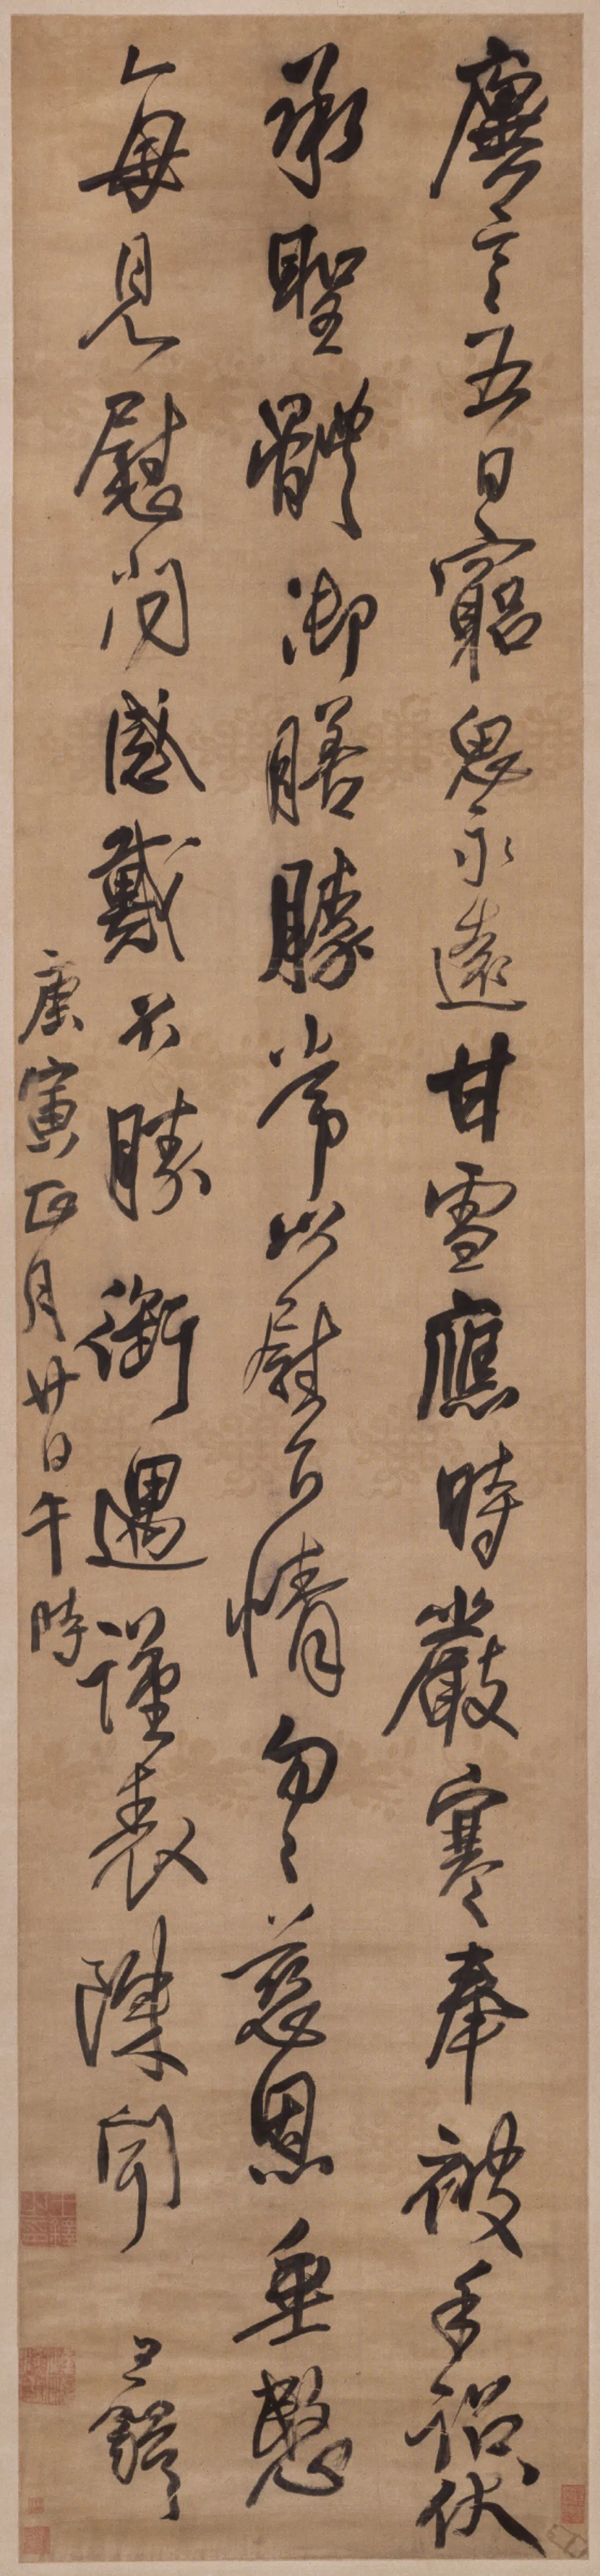 廙言五日窮思永遠甘雪應時嚴寒奉被手詔伏
承聖體御膳勝常以慰下情勿〻慈恩垂愍
每見慰問感戴不勝銜遇謹表陳聞 王鐸
庚寅正月廿日午時